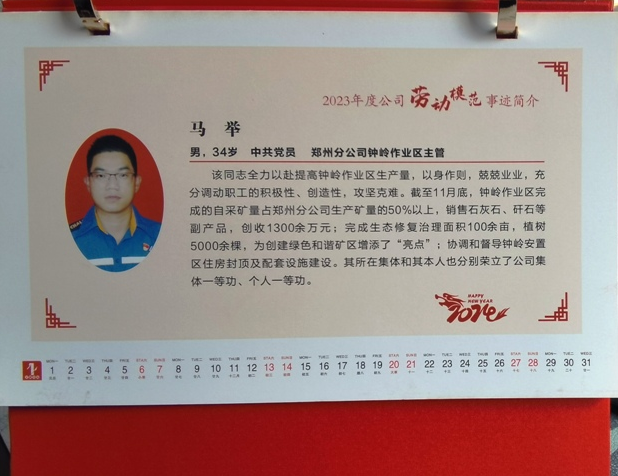 2023年度公司 劳动模范 事迹简介
马 举
男，34岁 中共党员 郑州分公司钟岭作业区主管
该同志全力以赴提高钟岭作业区生产量，以身作则，兢兢业业，充
分调动职工的积极性、创造性，攻坚克难。截至11月底，钟岭作业区完
成的自采矿量占郑州分公司生产矿量的50%以上，销售石灰石、矸石等
副产品，创收1300余万元；完成生态修复治理面积100余亩，植树
5000余棵，为创建绿色和谐矿区增添了“亮点”；协调和督导钟岭安置
区住房封顶及配套设施建设。其所在集体和其本人也分别荣立了公司集
体一等功、个人一等功。
HAPPY
NEW YEAR
2024
1 2 3 4 5 6 7 8 9 10 11 12 13 14 15 16 17 18 19 20 21 22 23 24 25 26 27 28 29 30 31